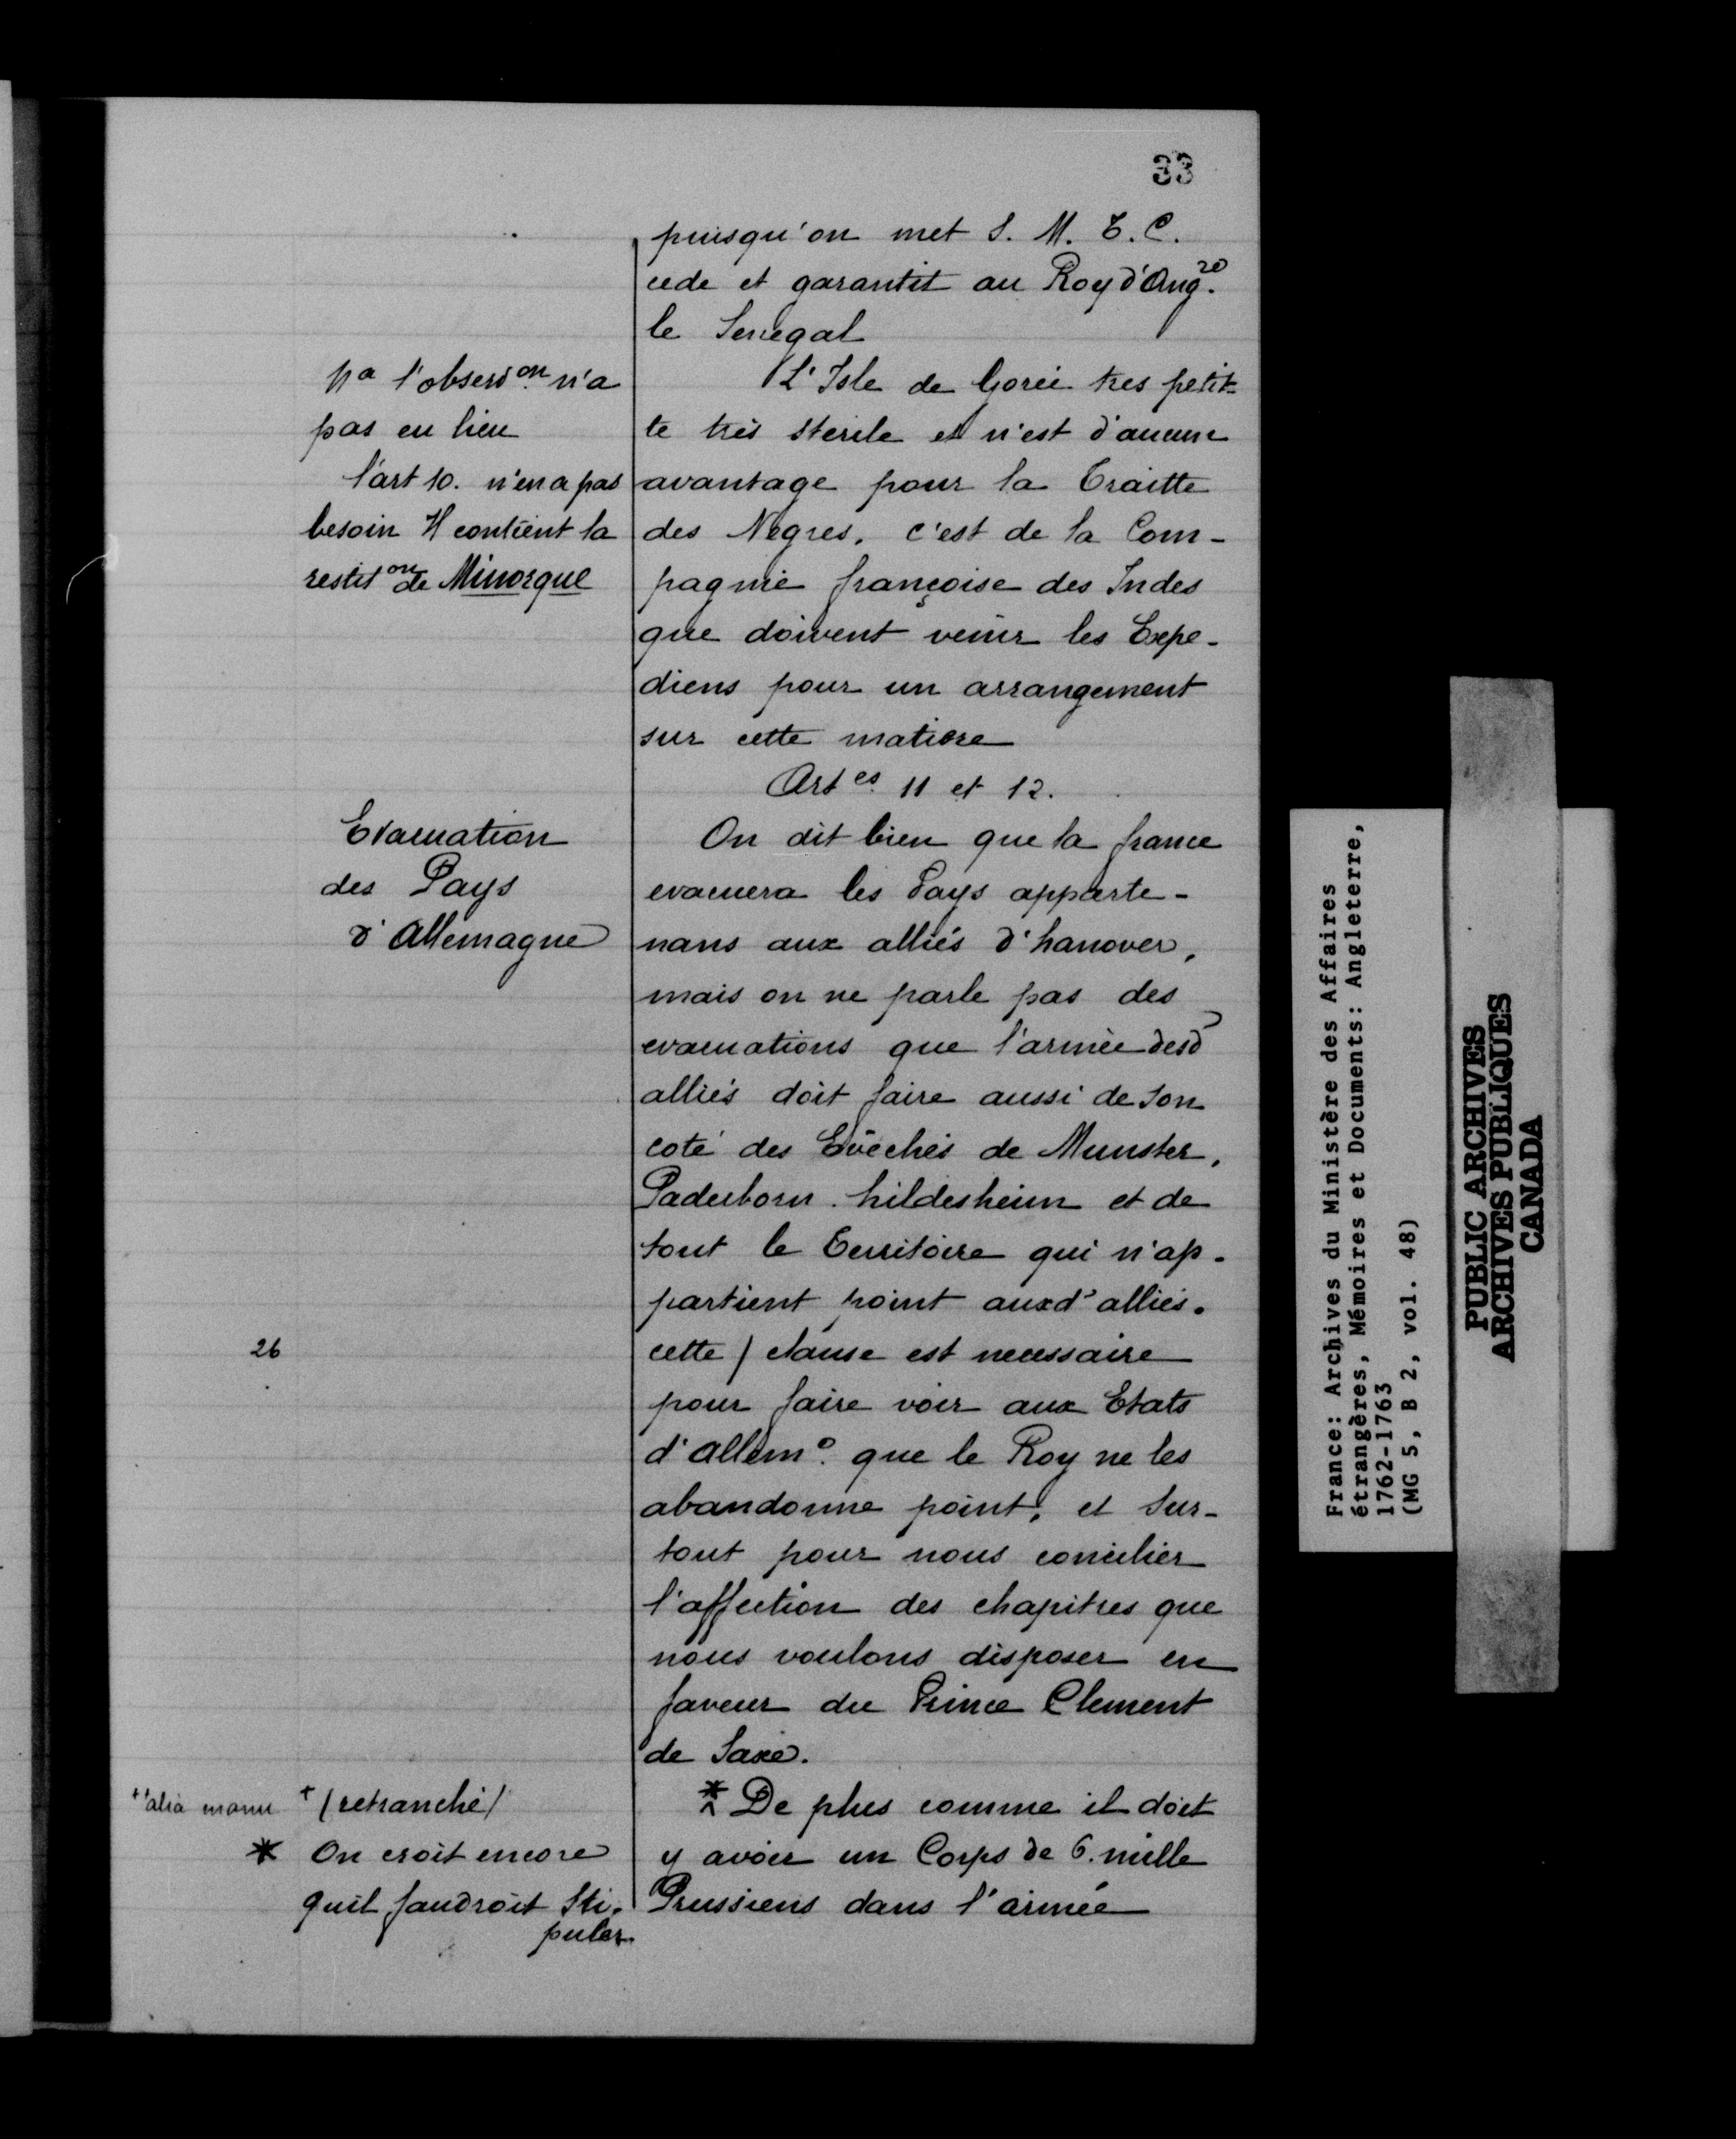 33
puisqu'on met S. M. T. C.
cede et garantit au Roy d'Ang.re
le Senegal
Na l'observon. n'a
pas eu lieu
l'art 10. n'en a pas
besoin Il contient la
restit on de Minorque
L'Isle de Gorée tres petit-
te très sterile et n'est d'aucun
avantage pour la Traitte
des Negres. c'est de la Com-
pagnie françoise des Indes
que doivent venir les Expe-
diens pour un arrangement
sur cette matiere
Art es. 11 et 12.
Evacuation
des Pays
d'Allemagne
On dit bien que la france
evacuera les Pays apparte-
nans aux alliés d'hanover,
mais on ne parle pas des
evacuations que l'armée desd
alliés doit faire aussi de son
coté des Evêchés de Munster,
Paderborn. hildesheim et de
tout le Territoire qui n'ap-
partient point auxd' alliés.
26
cette / clause est necessaire
pour faire voir aux Etats
d'allem e. que le Roy ne les
abandonne point, et sur-
tout pour nous concilier
l'affection des chapitres que
nous voulons disposer en
faveur du Prince Clement
de Saxe.
+'alia manu +(retranché/
* On croit encore
quil faudroit sti-
puler
* De plus comme il doit
y avoir un Corps de 6. mille
Prussiens dans l'armée
France: Archives du Ministère des Affaires
étrangères, Mémoires et Documents: Angleterre,
1762-1763
(MG 5, B 2, vol. 48)
PUBLIC ARCHIVES
ARCHIVES PUBLIQUES
CANADA